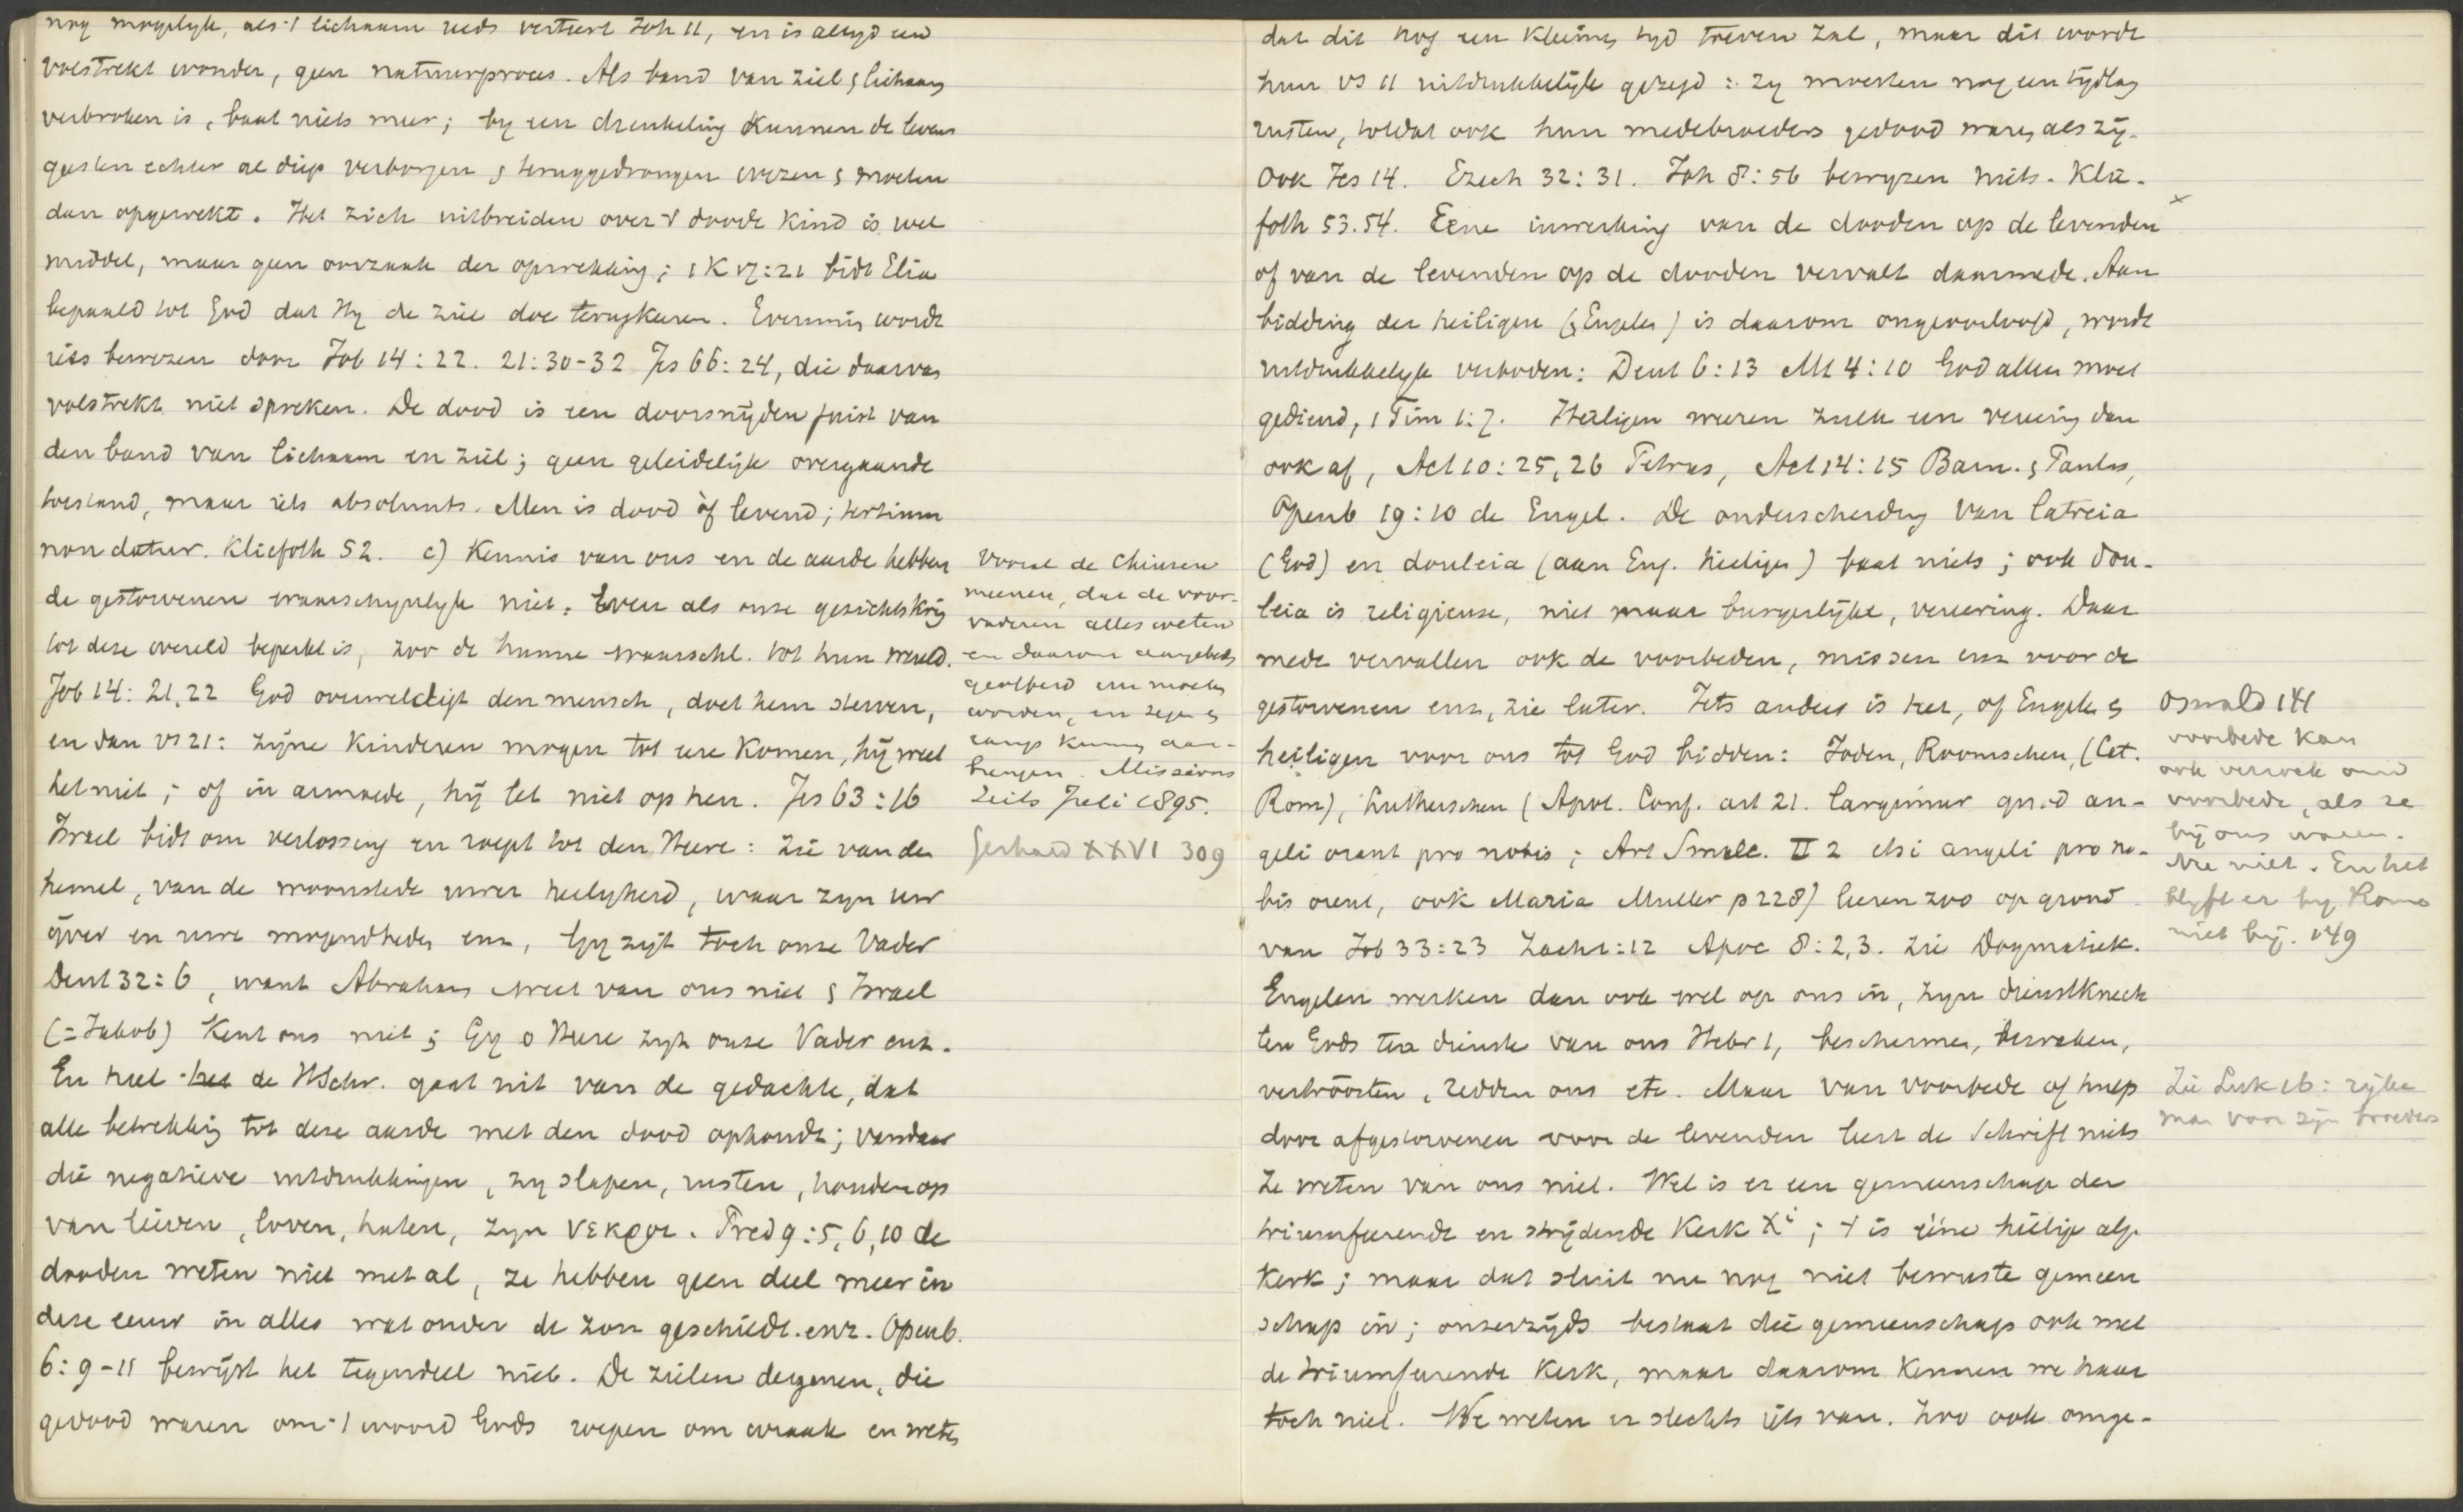 nog mogelyk, als 't lichaam reeds verteert Joh 11, en is altyd een
volstrekt wonder, geen natuurproces. Als band van ziel & lichaam
verbroken is, baat niets meer; by een drenkeling kunnen de levens
geesten echter al diep verborgen & teruggedrongen wezen & moeten
dan opgewekt. Het zich uitbreiden over 't doode kind is wel
middel, maar geen oorzaak der opwekking; 1 K 17:21 bidt Elia
bepaald tot God dat Hy de ziel doe terugkeeren. Evenmin wordt
iets bewezen door Job 14:22. 21:30-32 Jes 66:24, die daarvan
volstrekt niet spreken. De dood is een doorsnyden juist van
den band van lichaam en ziel; geen geleidelijk overgaande
toestand, maar iets absoluuts. Men is dood òf levend; tertium
non datur. Kliefoth 52. c) Kennis van ons en de aarde hebben
de gestorvenen waarschynlyk niet. Even als onze gezichtskring
tot deze wereld beperkt is, zoo de hunne waarschl. tot hun wereld.
Job 14:21,22 God overweldigt den mensch, doet hem sterven,
en dan vs 21: zijne kinderen mogen tot eere komen, hij weet
het niet; of in armoede, hij let niet op hen. Jes 63:16
Israel bidt om verlossing en roept tot den Heere: zie van den
hemel, van de woonstede uwer heiligheid, waar zyn uw
ijver en uwe mogendheden enz, Gy zijt toch onze Vader
Deut 32:6, want Abraham weet van ons niet & Israel
(=Jakob) kent ons niet; Gy o Heere zyt onze Vader enz.
En heel de HSchr. gaat uit van de gedachte, dat
alle betrekking tot deze aarde met den dood ophoudt; vandaar
die negatieve uitdrukkingen, zy slapen, rusten, houden op
van leven, loven, haten, zyn νεκροι. Pred 9:5,6,10 de
dooden weten niet met al, ze hebben geen deel meer in
deze eeuw in alles wat onder de zon geschiedt. enz. Openb.
6:9-11 bewijst het tegendeel niet. De zielen dergenen, die
gedood waren om 't woord Gods roepen om wraak en weten
Vooral de Chineezen
meenen, dat de voor-
vaderen alles weten
en daarom aangebeden
geofferd enz moeten
worden, en zegen &
ramp kunnen aan-
brengen. Missions
Zeits Juli 1895.
Gerhard XXVI 309
dat dit nog een kleinen tyd toeven zal, maar dit wordt
hun vs 11 uitdrukkelijk gezegd: zy moesten nog een tydlang
rusten, totdat ook hun medebroeders gedood waren als zij.
Ook Jes 14. Ezech 32:31. Joh 8:56 bewyzen niets. Klie-
foth 53.54. Eene inwerking van de dooden op de levenden x
of van de levenden op de dooden vervalt daarmede. Aan
bidding der heiligen (& Engelen) is daarom ongeoorloofd, wordt
uitdrukkelyk verboden: Deut 6:13 Mt 4:10 God alleen moet
gediend, 1 Tim 1:7. Heiligen weeren zulk een vereering dan
ook af, Act 10:25,26 Petrus, Act 14:15 Barn. & Paulus,
Openb 19:10 de Engel. De onderscheiding van latreia
(God) en douleia (aan Eng. heiligen) baat niets; ook dou-
leia is religieuse, niet maar burgerlijke, vereering. Daar
mede vervallen ook de voorbeden, missen enz voor de
gestorvenen enz, zie later. Iets anders is het, of Engelen &
heiligen voor ons tot God bidden: Joden, Roomschen, (Cat.
Rom), Lutherschen (Apol. Conf. art 21. largimur quod an-
geli orant pro nobis; Art Smalc. II 2 etsi angeli pro no-
bis orent, ook Maria Muller p 228) leeren zoo op grond
van Job 33:23 Zach 1:12 Apoc 8:2,3. zie Dogmatiek.
Engelen werken dan ook wel op ons in, zyn dienstknech
ten Gods ten dienste van ons Hebr 1, beschermen, bewaken,
vertroosten, redden ons etc. Maar van voorbede of hulp
door afgestorvenen voor de levenden leert de Schrift niets
Ze weten van ons niet. Wel is er een gemeenschap der
triumfeerende en strijdende Kerk Xi; 't is ééne heilige alg.
Kerk; maar dat sluit nu nog niet bewuste gemeen
schap in; onzerzijds bestaat die gemeenschap ook met
de triumfeerende Kerk, maar daarom kennen we haar
toch niet. We weten er slechts iets van. Zoo ook omge-
Oswald 141
voorbede kan
ook verzoek om
voorbede, als ze
bij ons waren.
Nu niet. En het
blyft er by Rome
niet bij. 149
Zie Luk 16: rijke
man voor zijn broeders